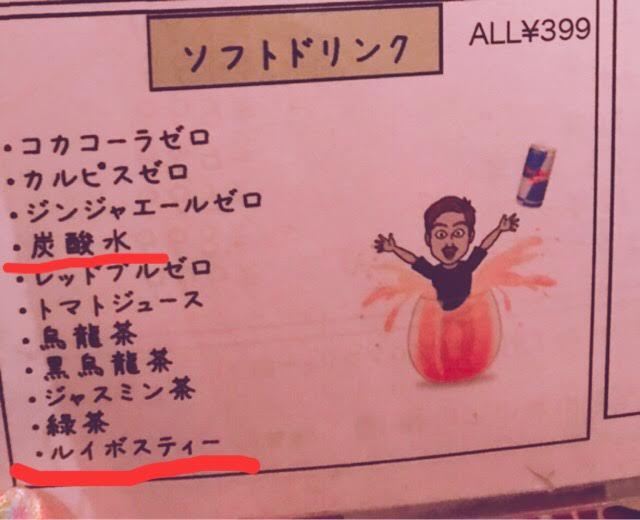 ソフトドリンク
ALL¥399
・コカコーラゼロ
・カルピスゼロ
・ジンジャエールゼロ
・炭酸水
・レッドブルゼロ
・トマトジュース
・烏龍茶
・黒烏龍茶
・ジャスミン茶
・緑茶
・ルイボスティー